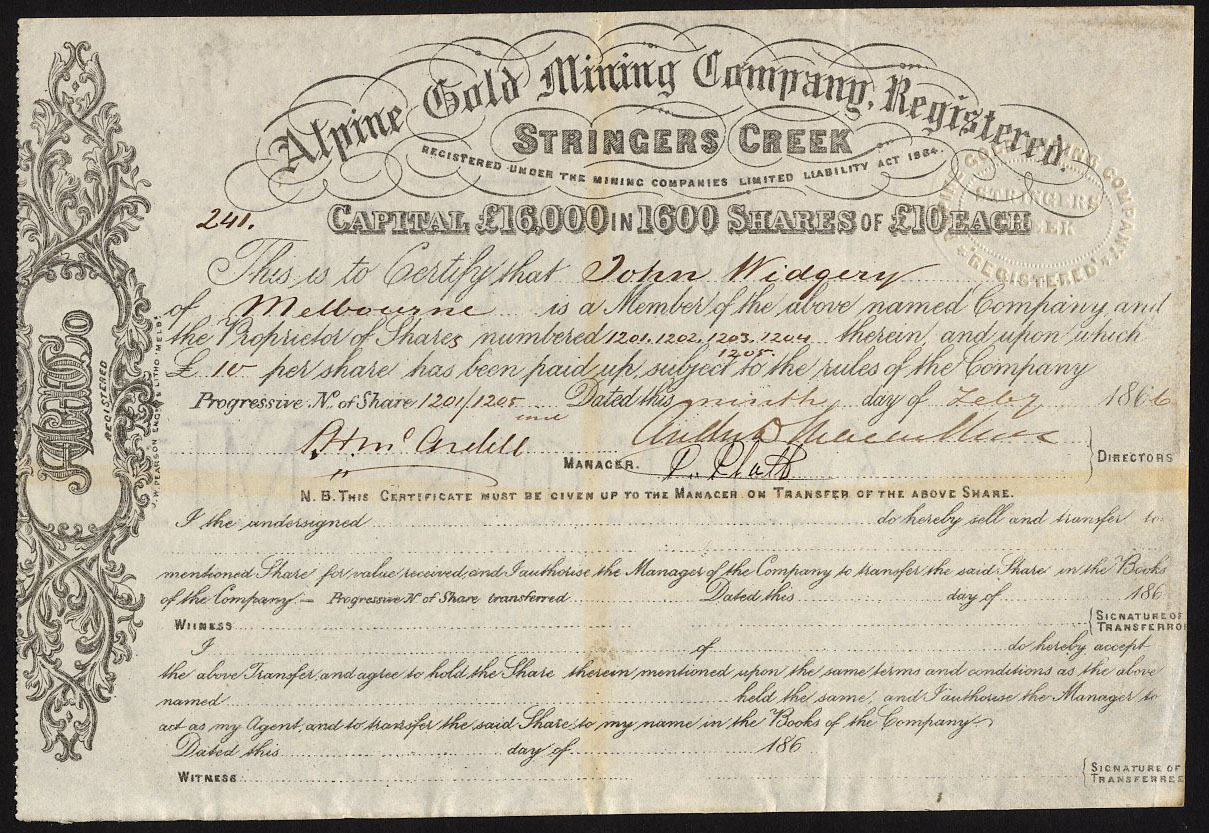 Alpine Gold Mining Company, Registered.
STRINGERS CREEK
REGISTERED UNDER THE MINING COMPANIES LIMITED LIABILITY ACT 1864.
241.
CAPITAL £16,000 IN 1600 SHARES OF £10 EACH
This is to Certify that John Widgery
of Melbourne is a Member of the above named Company and
the Proprietor of Shares numbered 1201.1202.1203.1204 therein, and upon which
1205.
£ 10 per share has been paid up, subject to the rules of the Company
Progressive No. of Share 1201/1205 Dated this ninth day of Feby 1866
incl
MANAGER.
DIRECTORS
N.B. THIS CERTIFICATE MUST BE GIVEN UP TO THE MANAGER ON TRANSFER OF THE ABOVE SHARE.
I the undersigned do hereby sell and transfer to
mentioned Share for value received, and I authorise the Manager of the Company to transfer the said Share in the Books
of the Company.— Progressive No. of Share transferred Dated this day of 186
WITNESS SIGNATURE OF
TRANSFERROR
I of do hereby accept
the above Transfer, and agree to hold the Share therein mentioned upon the same terms and conditions as the above
named held the same, and I authorise the Manager to
act as my Agent, and to transfer the said Share to my name in the Books of the Company
Dated this day of 186
WITNESS SIGNATURE OF
TRANSFERREE
AGMCo
REGISTERED
J.W. PEARSON ENGR. & LITHO. MELB.
GOLD MINING COMPANY
STRINGERS
CREEK
REGISTERED